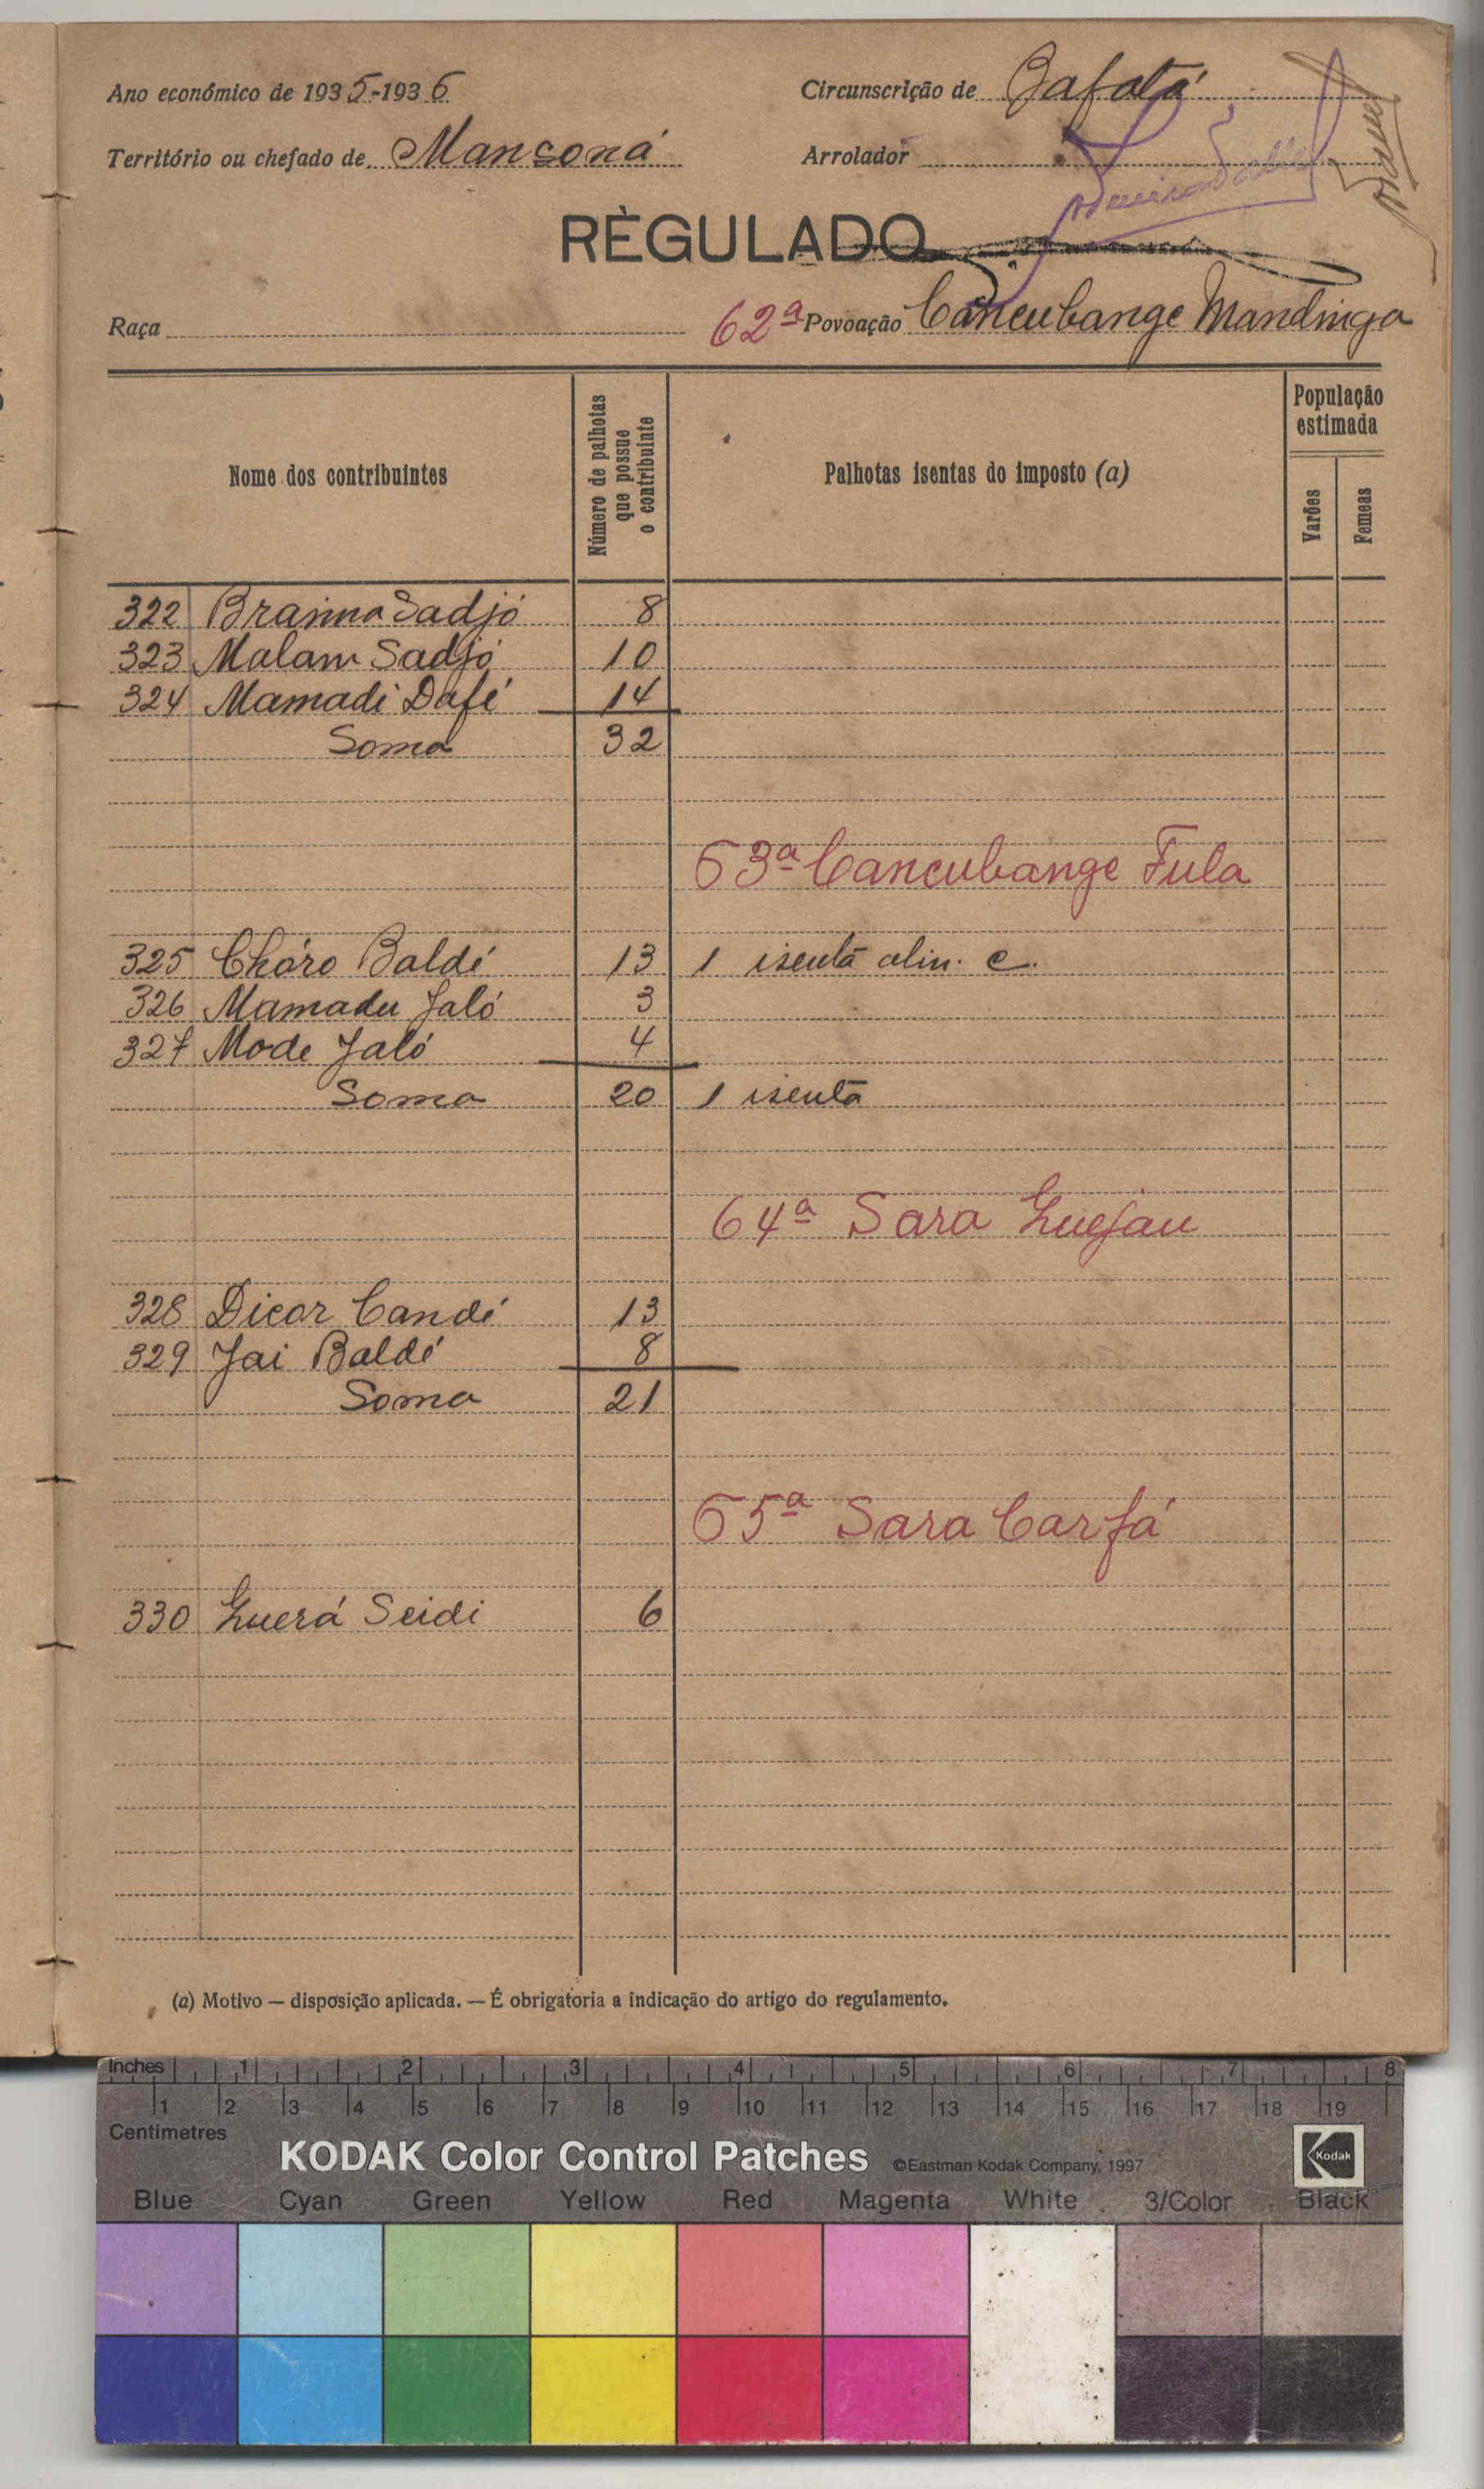 Ano económico de 1935-1936
Circunscrição de Bafatá
Território ou chefado de Mansoná
Arrolador
RÈGULADO
Raça
62ª Povoação Cancubange Mandinga
Nome dos contribuintes
Número de palhotas
que possue
o contribuinte
Palhotas isentas do imposto (a)
População
estimada
Varões
Femeas
322 Braima Sadjó 8
323 Malam Sadjó 10
324 Mamadi Dafé 14
Soma 32
63ª Cancubange Fula
325 Chóro Baldé 13 1 isenta alin. c.
326 Mamadu Jaló 3
327 Mode Jaló 4
Soma 20 1 isenta
64ª Sara Guejau
328 Dicor Candé 13
329 Jai Baldé 8
Soma 21
65ª Sara Carfá
330 Guerá Seidi 6
(a) Motivo — disposição aplicada. — É obrigatoria a indicação do artigo do regulamento.
Inches 1 2 3 4 5 6 7 8
1 2 3 4 5 6 7 8 9 10 11 12 13 14 15 16 17 18 19
Centimetres
KODAK Color Control Patches ©Eastman Kodak Company, 1997 Kodak
Blue Cyan Green Yellow Red Magenta White 3/Color Black